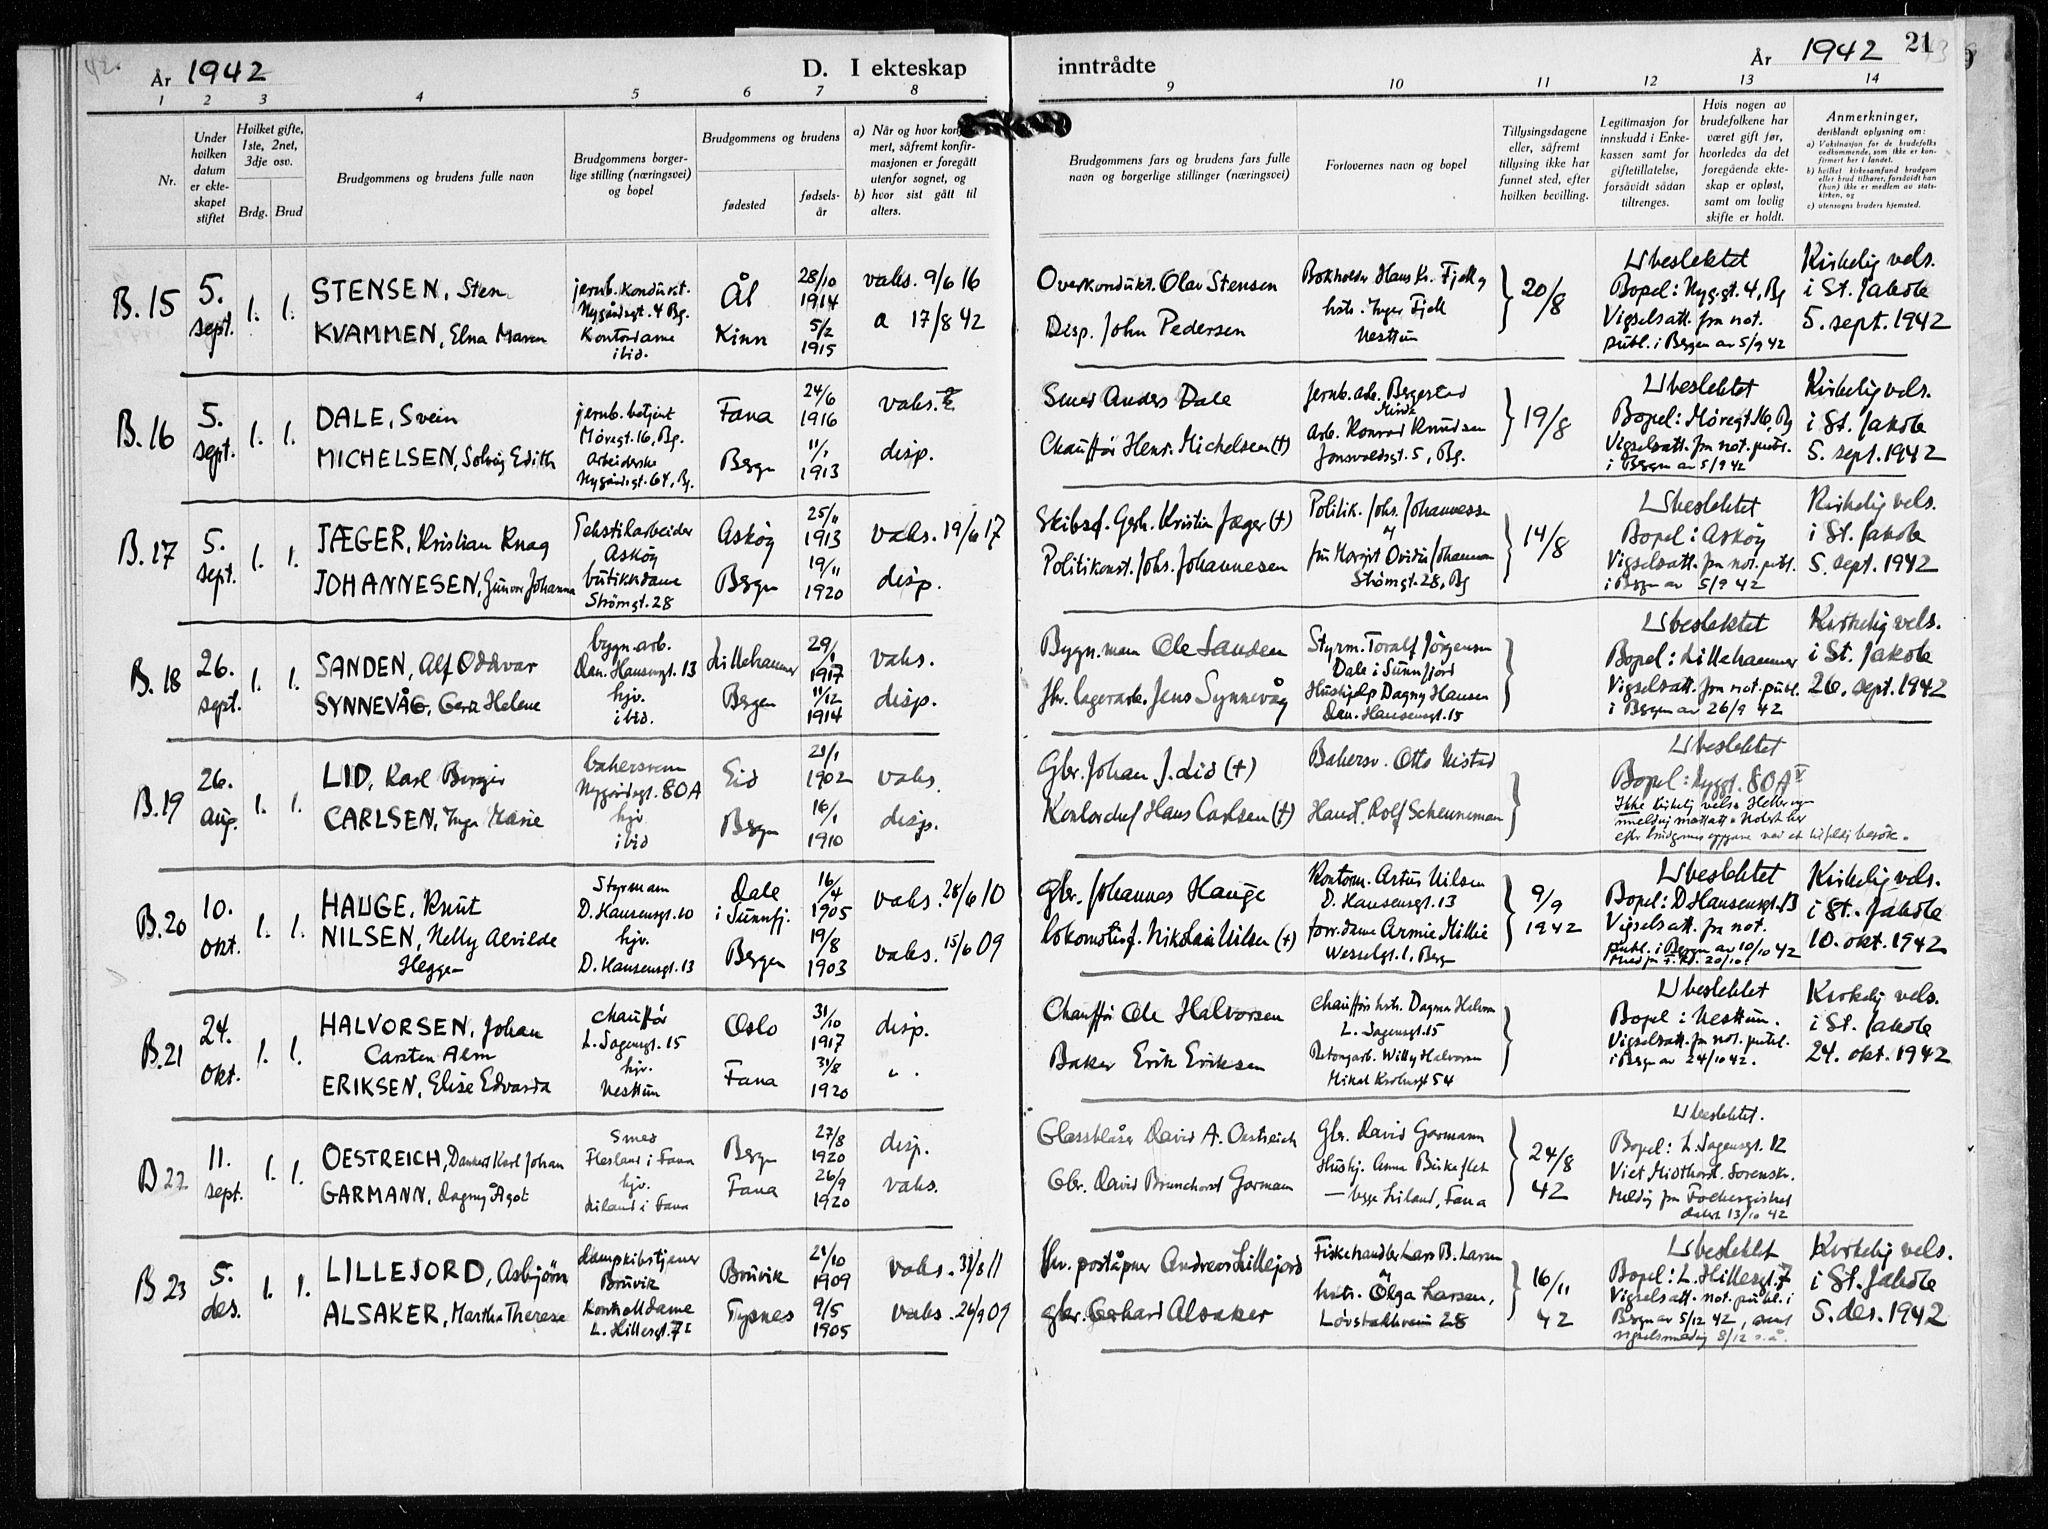 År 1942
D. I ekteskap
1 2 3 4 5 6 7 8
Nr.
Under hvilken datum er ekteskapet stiftet
Hvilket gifte, 1ste, 2net, 3dje osv.
Brdg. Brud
Brudgommens og brudens fulle navn
Brudgommens borgerlige stilling (næringsvei) og bopel
Brudgommens og brudens
fødested
fødselsår
a) Når og hvor konfirmert, såfremt konfirmasjonen er foregått utenfor sognet, og
b) hvor sist gått til alters.
B. 15 5. sept. 1. 1.
STENSEN, Sten
jernb. kondukt. Nygårdsgt. 4 Bg.
Ål 28/10 1914 vaks. 9/6 16
KVAMMEN, Elna Maren
Kontordame ibid.
Kinn 5/2 1915 a 17/8 42
B. 16 5. sept. 1. 1.
DALE, Svein
jernb. betjent Møregt. 16, Bg.
Fana 24/6 1916 vaks.
MICHELSEN, Solveig Edith
Arbeiderske Nygårdsgt. 64, Bg.
Bergen 11/1 1913 disp.
B. 17 5. sept. 1. 1.
JÆGER, Kristian Knag
Tekstilarbeider Askøy
Askøy 25/11 1913 vaks. 19/6 17
JOHANNESEN, Gunvor Johanna
butikkdame Strømgt. 28
Bergen 19/11 1920 disp.
B. 18 26. sept. 1. 1.
SANDEN, Alf Oddvar
bygn. arb. Dan. Hansensgt. 13
Lillehammer 29/1 1917 vaks.
SYNNEVÅG, Gerd Helene
hjv. ibid.
Bergen 11/12 1914 disp.
B. 19 26. aug. 1. 1.
LID, Karl Birger
bakersvenn Nygårdsgt. 80A
Eid 1902 vaks.
CARLSEN, Inga Marie
hjv ibid
Bergen 16/1 1910 disp.
B. 20 10. okt. 1. 1.
HAUGE, Knut
Styrmann D. Hansensgt. 10
Dale i Sunnfj. 16/4 1905 vaks. 28/6 10
NILSEN, Nelly Alvilde Heggen
hjv. D. Hansensgt. 13
Bergen 19/8 1903 vaks. 15/6 09
B. 21 24. okt. 1. 1.
HALVORSEN, Johan Carsten Alm
chauffør L. Sagensgt. 15
Oslo 31/10 1917 disp.
ERIKSEN, Elise Edvarda
hjv. Nesttun
Fana 31/8 1920 "
B 22 11. sept. 1. 1.
OESTREICH, Dankert Karl Johan
Smed Flesland i Fana
Bergen 27/8 1920 disp.
GARMANN, Dagny Agot
hjv. Liland i Fana
Fana 26/9 1920 vaks.
B 23 5. des. 1. 1.
LILLEJORD, Asbjørn
dampskibstjener Bruvik
Bruvik 1909 vaks.
ALSAKER, Martha Therese
Kontordame L. Hillesgt. 7 I
Tysnes 9/5 1905 vaks. 26/9 09
År 1942 21
inntrådte
9 10 11 12 13 14
Brudgommens fars og brudens fars fulle navn og borgerlige stillinger (næringsvei)
Forlovernes navn og bopel
Tillysingsdagene eller, såfremt tillysing ikke har funnet sted, efter hvilken bevilling.
Legitimasjon for innskudd i Enkekassen samt for giftetillatelse, forsåvidt sådan tiltrenges.
Hvis nogen av brudefolkene har været gift før, hvorledes da det foregående ekteskap er opløst, samt om lovlig skifte er holdt.
Anmerkninger,
deriblandt oplysning om:
a) Vaksinasjon for de brudefolks vedkommende, som ikke er konfirmert her i landet.
b) hvilket kirkesamfund brudgom eller brud tilhører, forsåvidt han (hun) ikke er medlem av statskirken, og
c) utensogns bruders hjemsted.
Overkondukt. Olav Stensen
Disp. John Pedersen
Bokholder Hans Kr. Fjell og hstr. Inger Fjell Nesttun
20/8
Ubeslektet
Bopel: Nyg.gt. 4, Bg
Vigselsatt. fra not. publ. i Bergen av 5/9 42
Kirkelig vels. i St. Jakob 5. sept. 1942
Smed Anders Dale
Chauffør Henr. Michelsen (†)
Jernb. arb. Bergestad Minde
Arb. Konrad Knudsen Jonsvoldsgt. 5, Bg.
19/8
Ubeslektet
Bopel: Møregt 16, Bg
Vigselsatt. fra not. publ. i Bergen av 5/9 42
Kirkelig vels. i St. Jakob 5. sept. 1942
Skibsf. Gerh. Kristian Jæger (†)
Politikonst. Johs. Johannesen
Politik. Johs. Johannessen og fru Margit Ovidia Johannesen Strømgt. 28, Bg
14/8
Ubeslektet
Bopel: Askøy
Vigselsatt. fra not. publ. i Bergen av 5/9 42
Kirkelig vels. i St. Jakob 5. sept. 1942
Bygn. mann Ole Sanden
fhv. lagerarb. Jens Synnevåg
Styrm. Toralf Jørgensen Dale i Sunnfjord
Hushjelp Dagny Hansen Dan. Hansensgt. 15
Ubeslektet
Bopel: Lillehammer
Vigselsatt. fra not. publ. i Bergen av 26/9 42
Kirkelig vels. i St. Jakob 26. sept. 1942
Gbr. Johan J. Lid (†)
Kontorchef Hans Carlsen (†)
Bakersv. Otto Nistad
Handl. Rolf Scheuneman
Ubeslektet
Bopel: Nyggt. 80A IV
Ikke kirkelig vels.
Gbr. Johannes Hauge
lokomotivf. Nikolai Nilsen (†)
Kontorm. Artur Nilsen D. Hansensgt. 13
forr. dame Armie Millie Wesselgt. 1, Bergen
9/9 1942
Ubeslektet
Bopel: D Hansensgt. 13
Vigselsatt. fra not. publ. i Bergen av 10/10 42
Kirkelig vels. i St. Jakob 10. okt. 1942
Chauffør Ole Halvorsen
Baker Erik Eriksen
Chauffør hstr. Dagmar Halvorsen L. Sagensgt. 15
Betongarb. Willy Halvorsen Mikal Krohnsgt 54
Ubeslektet
Bopel: Nesttun.
Vigselsatt. fra not. publ. i Bergen av 24/10 42.
Kirkelig vels. i St. Jakob 24. okt. 1942
Glassblåser David A. Oestreich
Gbr. David Brunchorst Garmann
Gbr. David Garmann
Hushj. Anna Birkeflet
— begge Liland, Fana
24/8 42
Ubeslektet.
Bopel: L. Sagensgt. 12
Viet Midthord. Sorenskr.
Meldg fra Folkeregistret datert 13/10 42
fhv. poståpner Andreas Lillejord
gbr. Gerhard Alsaker
Fiskehandler Lars B. Larsen og hstr. Olga Larsen, Løvstakkveien 28
16/11 42
Ubeslektet
Bopel: L. Hillesgt. 7
Vigselsatt. not. publ. i Bergen av 5/12 42, samt vigselsmeldg 8/12 s.å.
Kirkelig vels. i St. Jakob 5. des. 1942